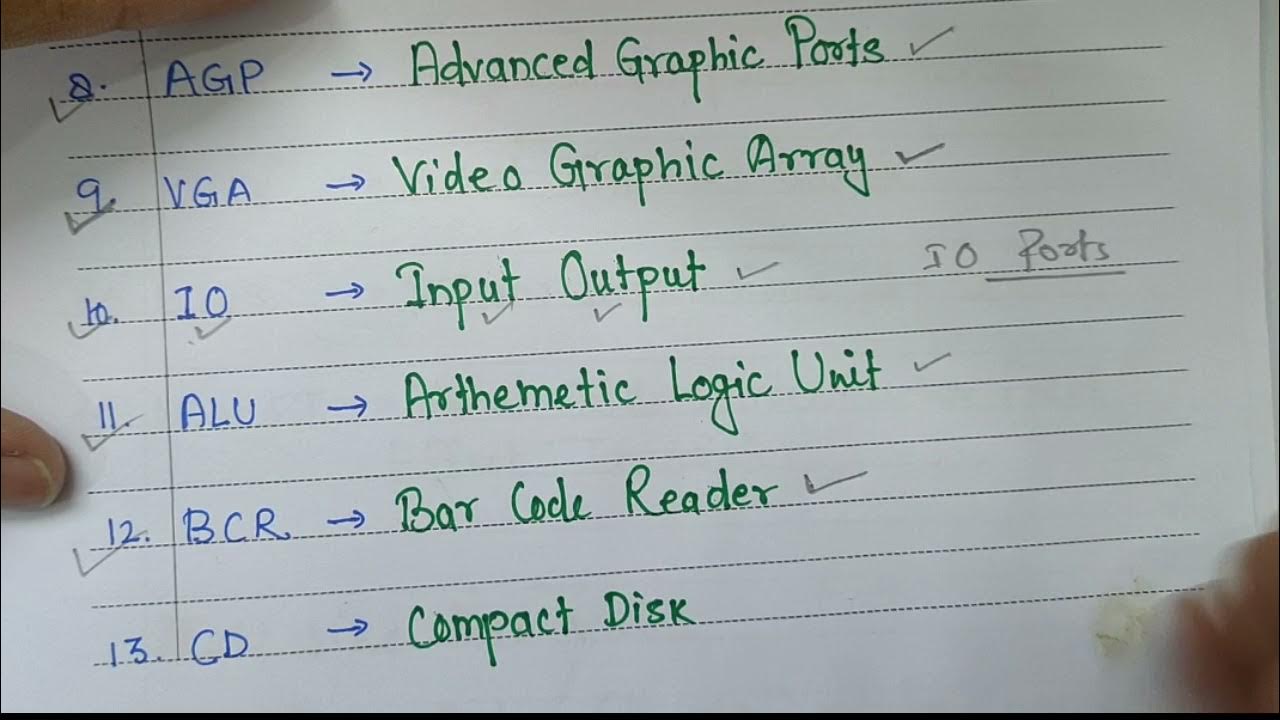 8. AGP → Advanced Graphic Ports ✓
9. VGA → Video Graphic Array ✓
10. IO → Input Output ✓ IO Ports
11. ALU → Arthemetic Logic Unit ✓
12. BCR → Bar Code Reader ✓
13. CD → Compact Disk